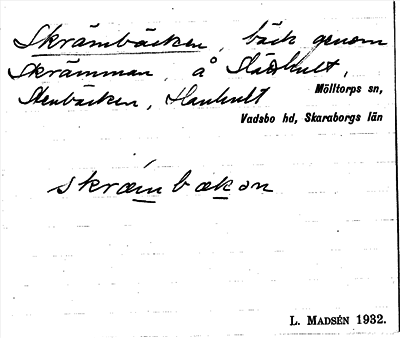 Skrämbäcken, bäck genom
Skrämman, å Slätthult,
Stenbäcken, Hanhult
Mölltorps sn,
Vadsbo hd, Skaraborgs län
skræmbækən
L. MADSÉN 1932.